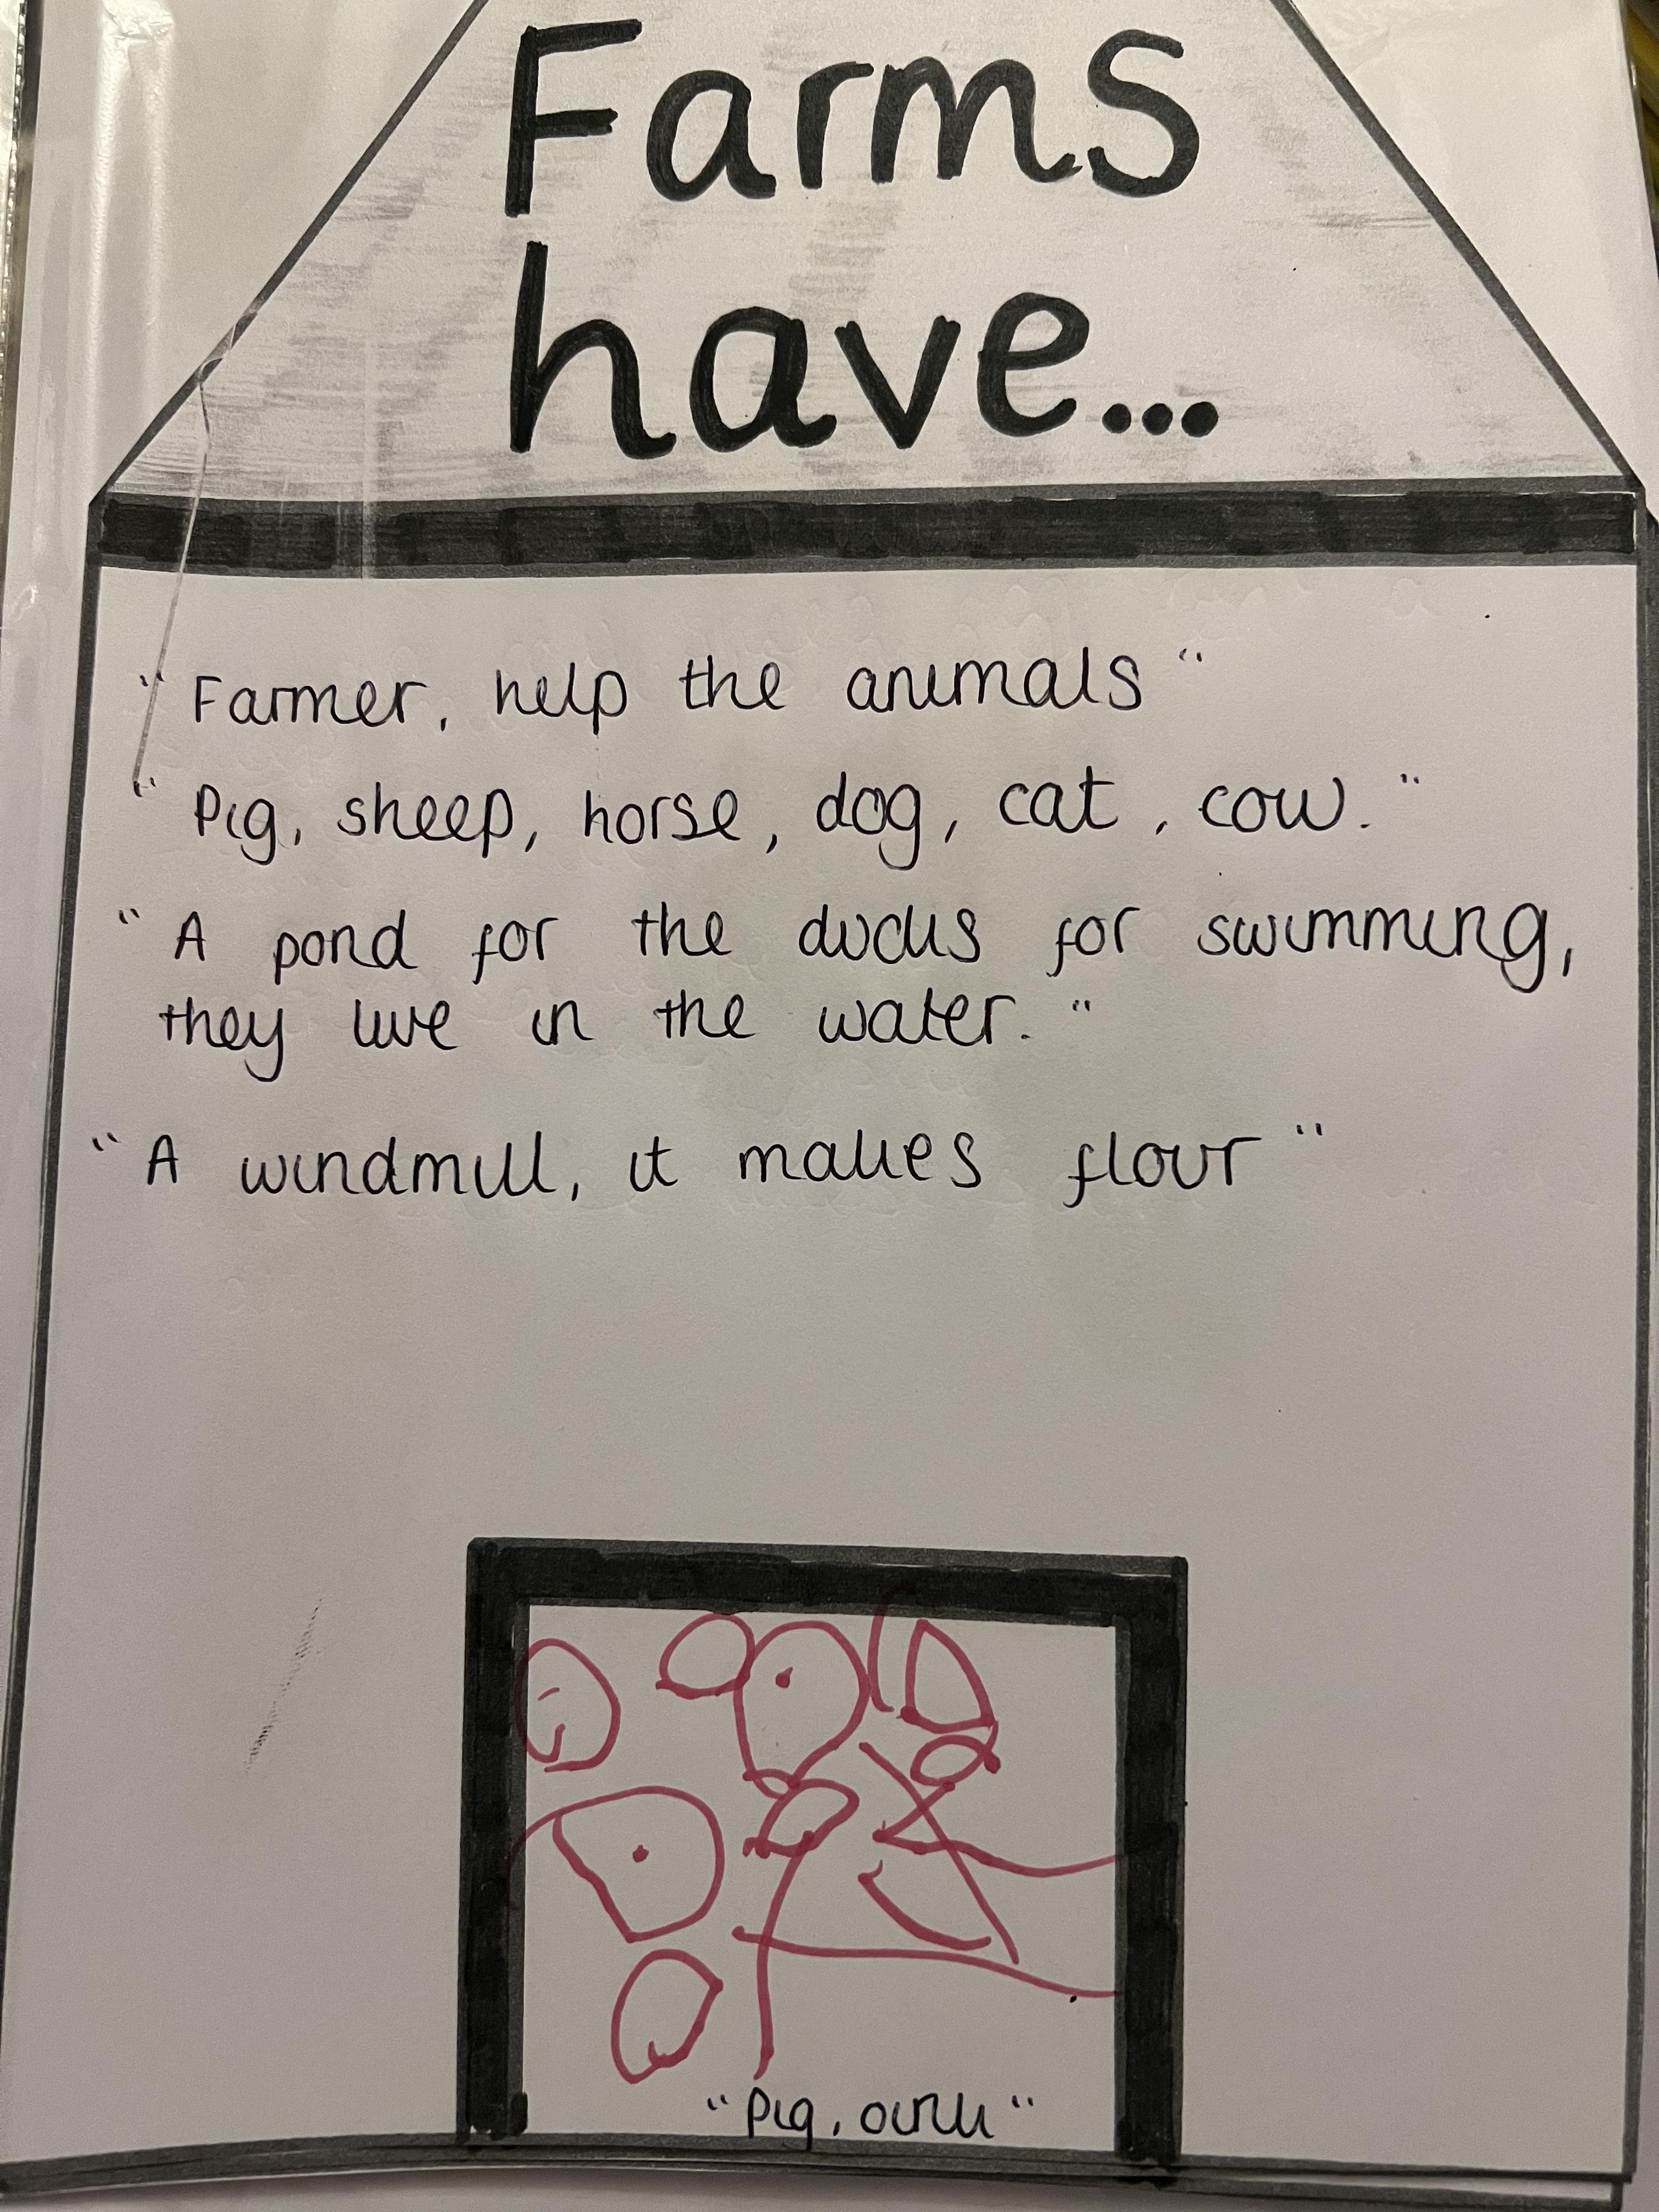 Farms
have...
"Farmer, help the animals"
"Pig, sheep, horse, dog, cat, cow."
"A pond for the ducks for swimming,
they live in the water."
"A windmill, it makes flour"
"Pig, oink"